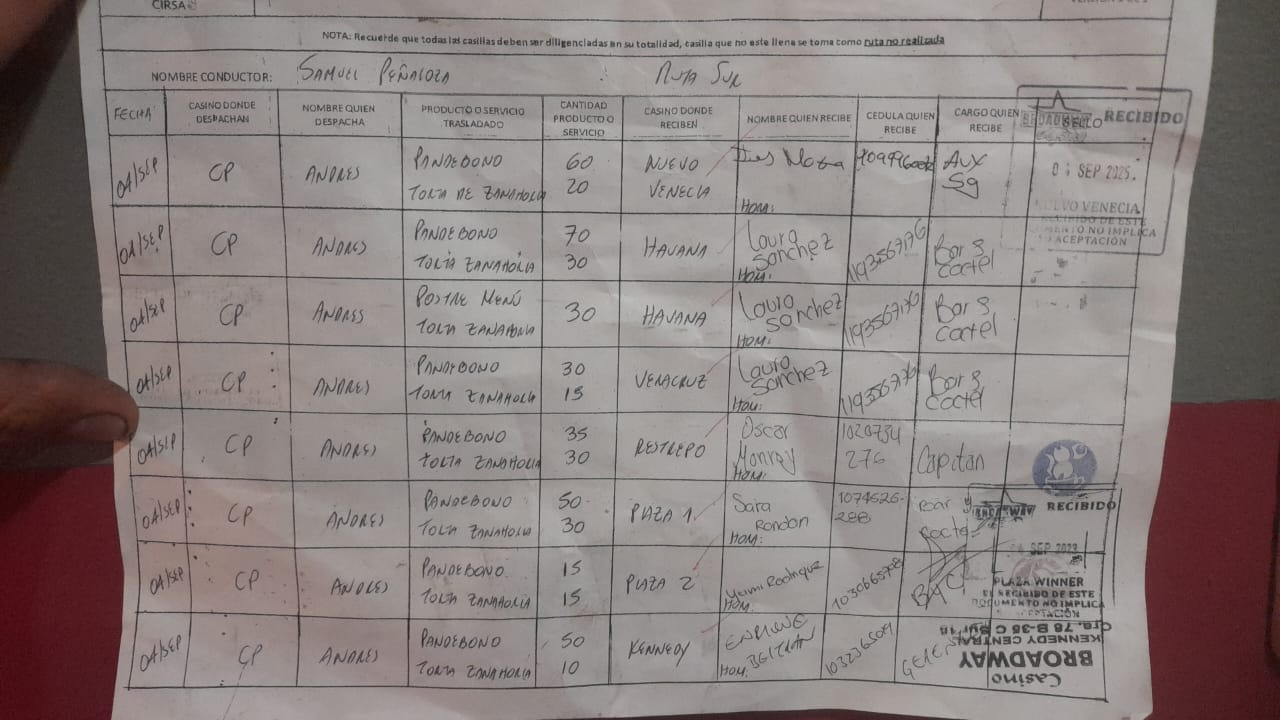 CIRSA
NOTA: Recuerde que todas las casillas deben ser diligenciadas en su totalidad, casilla que no este llena se toma como ruta no realizada
NOMBRE CONDUCTOR: SAMUEL PEÑALOZA RUTA SUR
FECHA CASINO DONDE DESPACHAN NOMBRE QUIEN DESPACHA PRODUCTO O SERVICIO TRASLADADO CANTIDAD PRODUCTO O SERVICIO CASINO DONDE RECIBEN NOMBRE QUIEN RECIBE CEDULA QUIEN RECIBE CARGO QUIEN RECIBE SELLO
04/SEP CP ANDRES PANDEBONO 60 NUEVO Aux
TORTA DE ZANAHORIA 20 VENECIA Sg
HOM:
BROADWAY RECIBIDO
SEP 2025.
NUEVO VENECIA
RECIBIDO DE ESTE
DOCUMENTO NO IMPLICA
SU ACEPTACIÓN
04/SEP CP ANDRES PANDEBONO 70 HAVANA Laura Sanchez 1193567176 Bar y
TORTA ZANAHORIA 30 HOM: Coctel
04/SEP CP ANDRES POSTRE MENÚ 30 HAVANA Laura Sanchez 1193567176 Bar y
TORTA ZANAHORIA HOM: Coctel
04/SEP CP ANDRES PANDEBONO 30 VERACRUZ Laura Sanchez 1193567176 Bar y
TORTA ZANAHORIA 15 HOM: Coctel
04/SEP CP ANDRES PANDEBONO 35 RESTREPO Oscar 1020734 Capitan
TORTA ZANAHORIA 30 Monroy 276
HOM:
04/SEP CP ANDRES PANDEBONO 50 PLAZA 1 Sara 1074526- Bar y
TORTA ZANAHORIA 30 Rondon 288 Coctel
HOM:
BROADWAY RECIBIDO
SEP
PLAZA WINNER
EL RECIBIDO DE ESTE
DOCUMENTO NO IMPLICA
ACEPTACIÓN
04/SEP CP ANDRES PANDEBONO 15 PLAZA 2 Yumi Rodrigue B y C
TORTA ZANAHORIA 15 HOM:
04/SEP CP ANDRES PANDEBONO 50 KENNEDY ENRIQUE
TORTA ZANAHORIA 10 HOM: BELTRAN
Casino
BROADWAY
KENNEDY CENTRAL
Cra. 78 B-35 C Sur 16